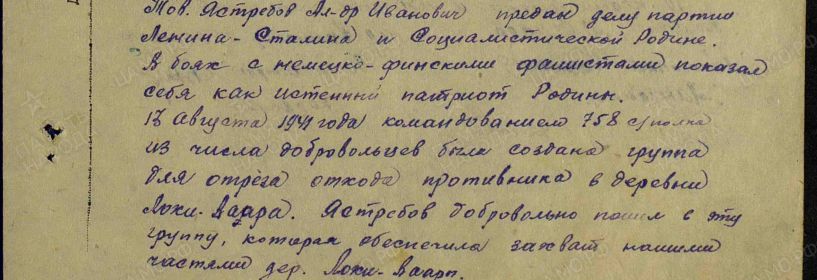 Тов. Ястребов Ал-др Иванович предан делу партии
Ленина-Сталина и Социалистической Родине.
В боях с немецко-финскими фашистами показал
себя как истенний патриот Родины.
17 Августа 1941 года командованием 758 с/полка
из числа добровольцев была создана группа
для отреза отхода противника в деревни
Локи-Ваара. Ястребов добровольно пошел в эту
группу, которая обеспечила захват нашими
частями дер. Локи-Ваара.